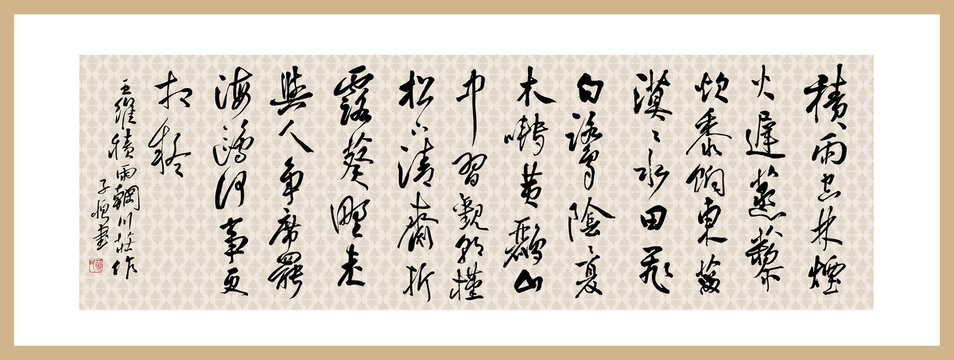 積雨空林煙
火遲蒸藜
炊黍餉東菑
漠〻水田飛
白鷺陰〻夏
木囀黃鸝山
中習觀朝槿
松下清齋折
露葵野老
與人爭席罷
海鷗何事更
相疑
王維積雨輞川莊作
子恆書